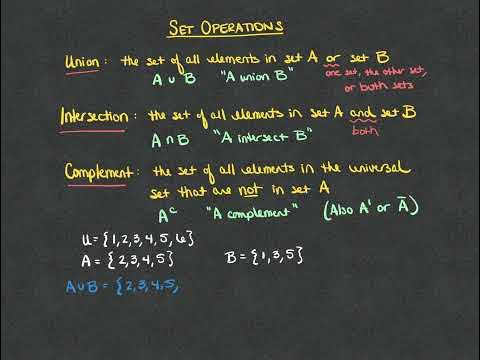 SET OPERATIONS
Union : the set of all elements in set A or set B
A ∪ B "A union B" one set, the other set,
or both sets
Intersection : the set of all elements in set A and set B
A ∩ B "A intersect B" both
Complement : the set of all elements in the universal
set that are not in set A
Aᶜ "A complement" (Also A' or Ā)
U = {1,2,3,4,5,6}
A = {2,3,4,5} B = {1,3,5}
A∪B = {2,3,4,5,